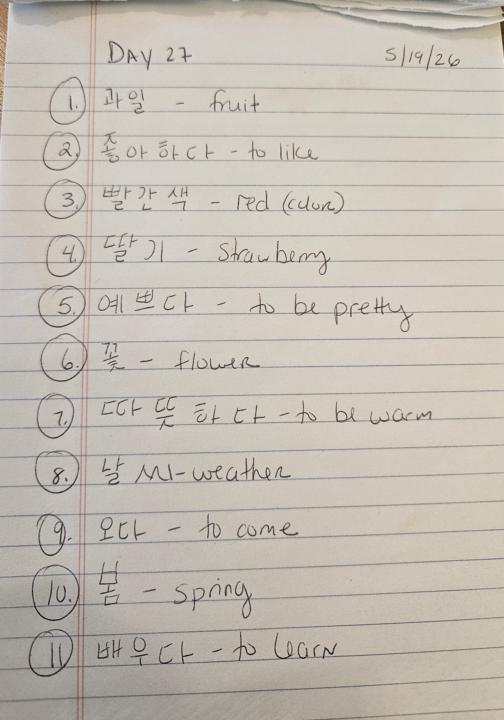 DAY 27 5/19/26
1. 과일 - fruit
2. 좋아하다 - to like
3. 빨간색 - red (color)
4. 딸기 - Strawberry
5. 예쁘다 - to be pretty
6. 꽃 - flower
7. 따뜻하다 - to be warm
8. 날씨 - weather
9. 오다 - to come
10. 봄 - spring
11 배우다 - to learn